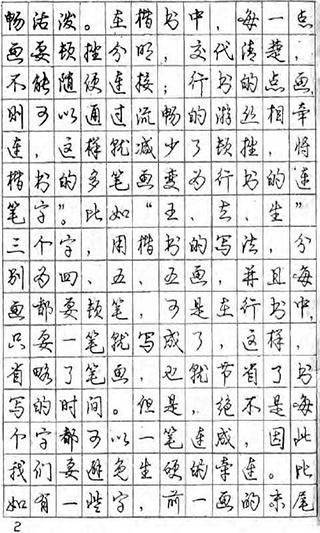 畅活泼。在楷书中，每一点
画要顿挫分明，交代清楚，
不能随便连接；行书的点画，
则可以通过流畅的游丝相牵
连，这样就减少了顿挫，将
楷书的多笔画变为行书的连
笔字”。比如“王、去、生”
三个字，用楷书的写法，分
别为四、五、五画，并且每
画都要顿笔，可是在行书中，
只要一笔就写成了，这样，
省略了笔画，也就节省了书
写的时间。但是，绝不是每
个字都可以一笔连成，因此
我们要避免生硬的牵连。比
如有一些字，前一画的末尾
2